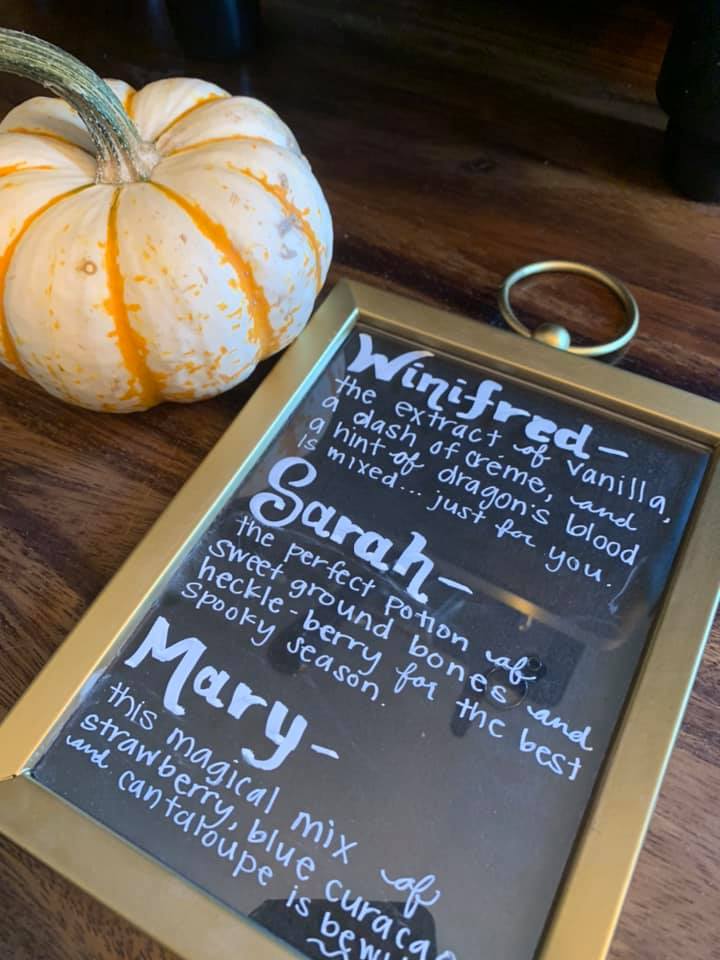 Winifred-
the extract of vanilla,
a dash of créme, and
a hint of dragon's blood
is mixed... just for you.
Sarah-
the perfect potion of
sweet ground bones and
heckle-berry for the best
spooky season.
Mary-
this magical mix of
strawberry, blue curacao
and cantaloupe is